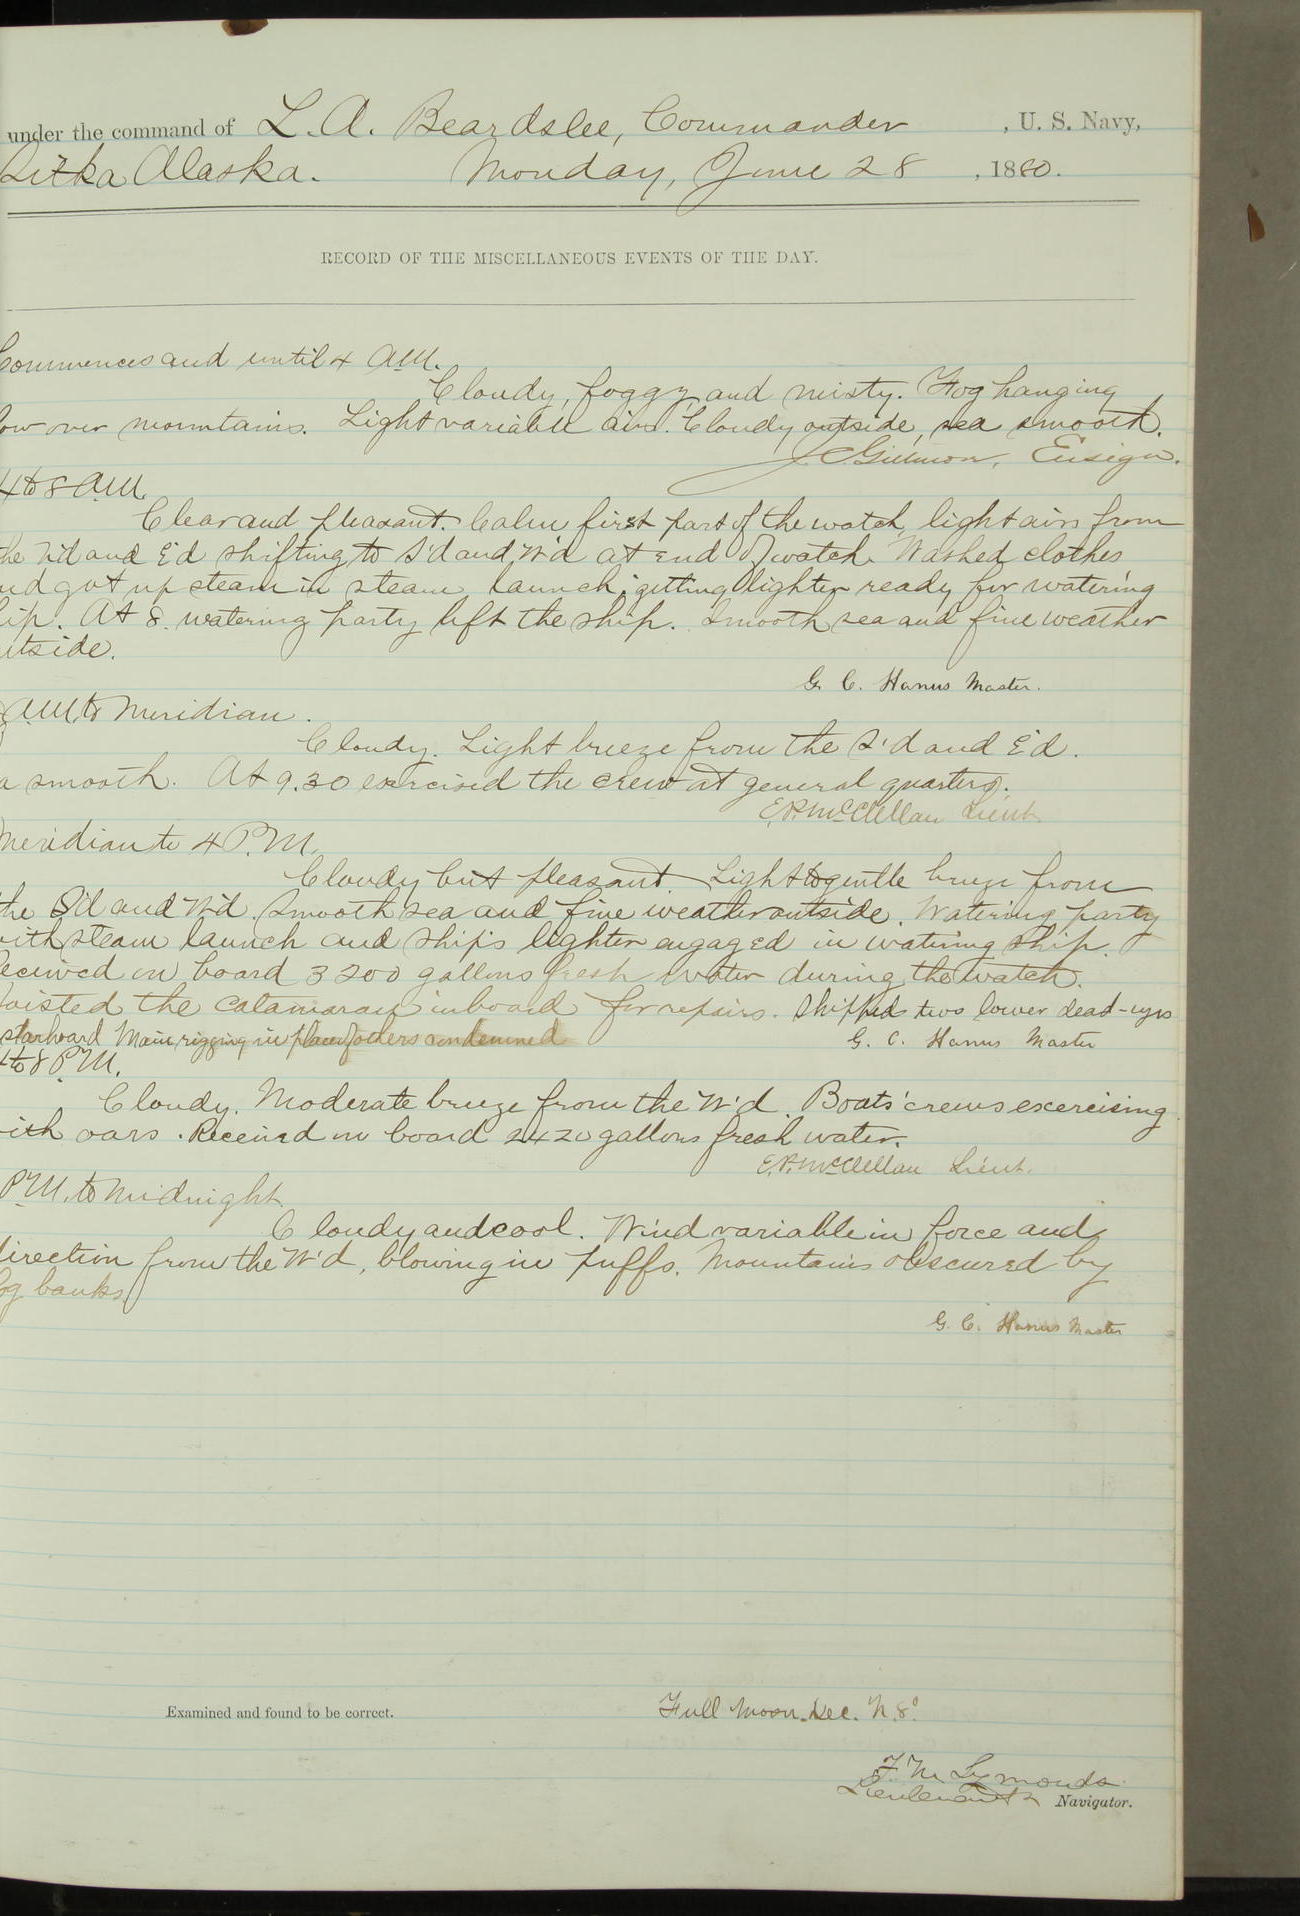 under the command of L. A. Beardslee, Commander , U. S. Navy,
Sitka Alaska. Monday, June 28 , 1880.
RECORD OF THE MISCELLANEOUS EVENTS OF THE DAY.
Commences and until 4 A.M.
Cloudy, foggy, and misty. Fog hanging
low over mountains. Light variable airs. Cloudy outside, sea smooth.
Ensign.
4 to 8 A.M.
Clear and pleasant. Calm first part of the watch, light airs from
the N'd and E'd shifting to S'd and W'd at end of watch. Washed clothes
and got up steam in steam launch; getting lighter ready for watering
ship. At 8. watering party left the ship. Smooth sea and fine weather
utside.
G. C. Hanus Master.
A.M. to Meridian.
Cloudy. Light breeze from the S'd and E'd.
a smooth. At 9.30 exercised the crew at general quarters.
E.P. McClellan Lieut.
Meridian to 4 P.M.
Cloudy but pleasant. Light to gentle breeze from
the S'd and W'd. Smooth sea and fine weather outside. Watering party
with steam launch and ship's lighter engaged in watering ship.
eceived on board 3200 gallons fresh water during the watch.
oisted the catamaran inboard for repairs. Shipped two lower dead-eyes
starboard Main rigging in place of others condemned
G. C. Hanus Master
4 to 8 P.M.
Cloudy. Moderate breeze from the W'd. Boats' crews exercising
ith oars. Received on board 2420 gallons fresh water.
E.P. McClellan Lieut.
P.M. to Midnight
Cloudy and cool. Wind variable in force and
direction from the W'd, blowing in puffs. Mountains obscured by
og banks.
G. C. Hanus Master
Examined and found to be correct.
Full Moon. Dec. N. 8°
F. M. Symonds
Lieutenant & Navigator.